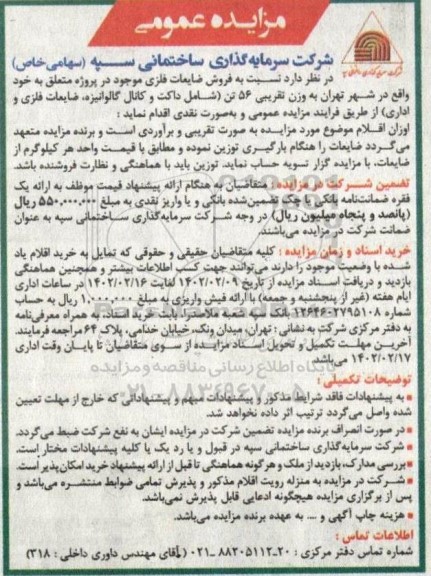 مزایده عمومی
شرکت سرمایه‌گذاری ساختمانی سپه (سهامی خاص)
در نظر دارد نسبت به فروش ضایعات فلزی موجود در پروژه متعلق به خود
واقع در شهر تهران به وزن تقریبی ۵۶ تن (شامل داکت و کانال گالوانیزه، ضایعات فلزی و
اداری) از طریق فرایند مزایده عمومی و به‌صورت نقدی اقدام نماید :
اوزان اقلام موضوع مورد مزایده به صورت تقریبی و برآوردی است و برنده مزایده متعهد
می‌گردد ضایعات را هنگام بارگیری توزین نموده و مطابق با قیمت واحد هر کیلوگرم از
ضایعات، با مزایده گزار تسویه حساب نماید. توزین باید با هماهنگی و نظارت فروشنده باشد.
تضمین شرکت در مزایده : متقاضیان به هنگام ارائه پیشنهاد قیمت موظف به ارائه یک
فقره ضمانت‌نامه بانکی یا چک تضمین‌شده بانکی و یا واریز نقدی به مبلغ ۵۵۰.۰۰۰.۰۰۰ ریال
(پانصد و پنجاه میلیون ریال) در وجه شرکت سرمایه‌گذاری ساختمانی سپه به عنوان
ضمانت شرکت در مزایده می‌باشند.
خرید اسناد و زمان مزایده : کلیه متقاضیان حقیقی و حقوقی که تمایل به خرید اقلام یاد
شده با وضعیت موجود را دارند می‌توانند جهت کسب اطلاعات بیشتر و همچنین هماهنگی
بازدید و دریافت اسناد مزایده از تاریخ ۱۴۰۲/۰۲/۰۹ لغایت ۱۴۰۲/۰۲/۱۶ در ساعات اداری
ایام هفته (غیر از پنجشنبه و جمعه) با ارائه فیش واریزی به مبلغ ۱.۰۰۰.۰۰۰ ریال به حساب
شماره ۱۲۶۴۶۰۲۷۹۵۱۰۸ بانک سپه شعبه ملاصدرا، بابت خرید اسناد، به همراه معرفی‌نامه
به دفتر مرکزی شرکت به نشانی : تهران، میدان ونک، خیابان خدامی، پلاک ۶۴ مراجعه فرمایند.
آخرین مهلت تکمیل و تحویل اسناد مزایده از سوی متقاضیان تا پایان وقت اداری
۱۴۰۲/۰۲/۱۷ می‌باشد.
پایگاه اطلاع رسانی مناقصه و مزایده
توضیحات تکمیلی :
- به پیشنهادات فاقد شرایط مذکور و پیشنهادات مبهم و پیشنهاداتی که خارج از مهلت تعیین
شده واصل می‌گردد ترتیب اثر داده نخواهد شد.
- در صورت انصراف برنده مزایده تضمین شرکت در مزایده ایشان به نفع شرکت ضبط می‌گردد.
- شرکت سرمایه‌گذاری ساختمانی سپه در قبول و یا رد یک یا کلیه پیشنهادات مختار است.
- بررسی مدارک، بازدید از ملک و هرگونه هماهنگی تا قبل از ارائه پیشنهاد خرید امکان‌پذیر است.
- شرکت در مزایده به منزله رویت اقلام مذکور و پذیرش تمامی ضوابط منتشره می‌باشد و
پس از برگزاری مزایده هیچگونه ادعایی قابل پذیرش نمی‌باشد.
- هزینه چاپ آگهی و .... به عهده برنده مزایده می‌باشد.
اطلاعات تماس :
شماره تماس دفتر مرکزی : ۲۰-۸۸۲۰۵۱۱۲-۰۲۱ (آقای مهندس داوری داخلی : ۳۱۸)